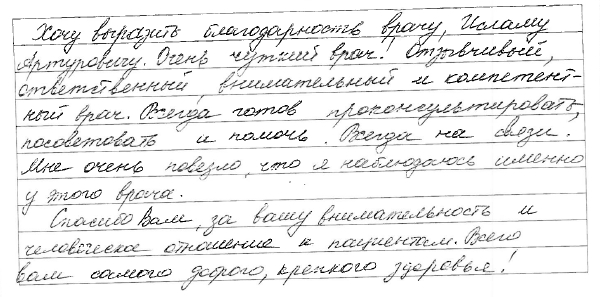 Хочу выразить благодарность врачу, Исламу
Артуровичу. Очень чуткий врач! Отзывчивый,
ответственный, внимательный и компетент-
ный врач. Всегда готов проконсультировать,
посоветовать и помочь. Всегда на связи.
Мне очень повезло, что я наблюдаюсь именно
у этого врача.
Спасибо Вам, за вашу внимательность и
человеческое отношение к пациентам. Всего
вам самого доброго, крепкого здоровья!